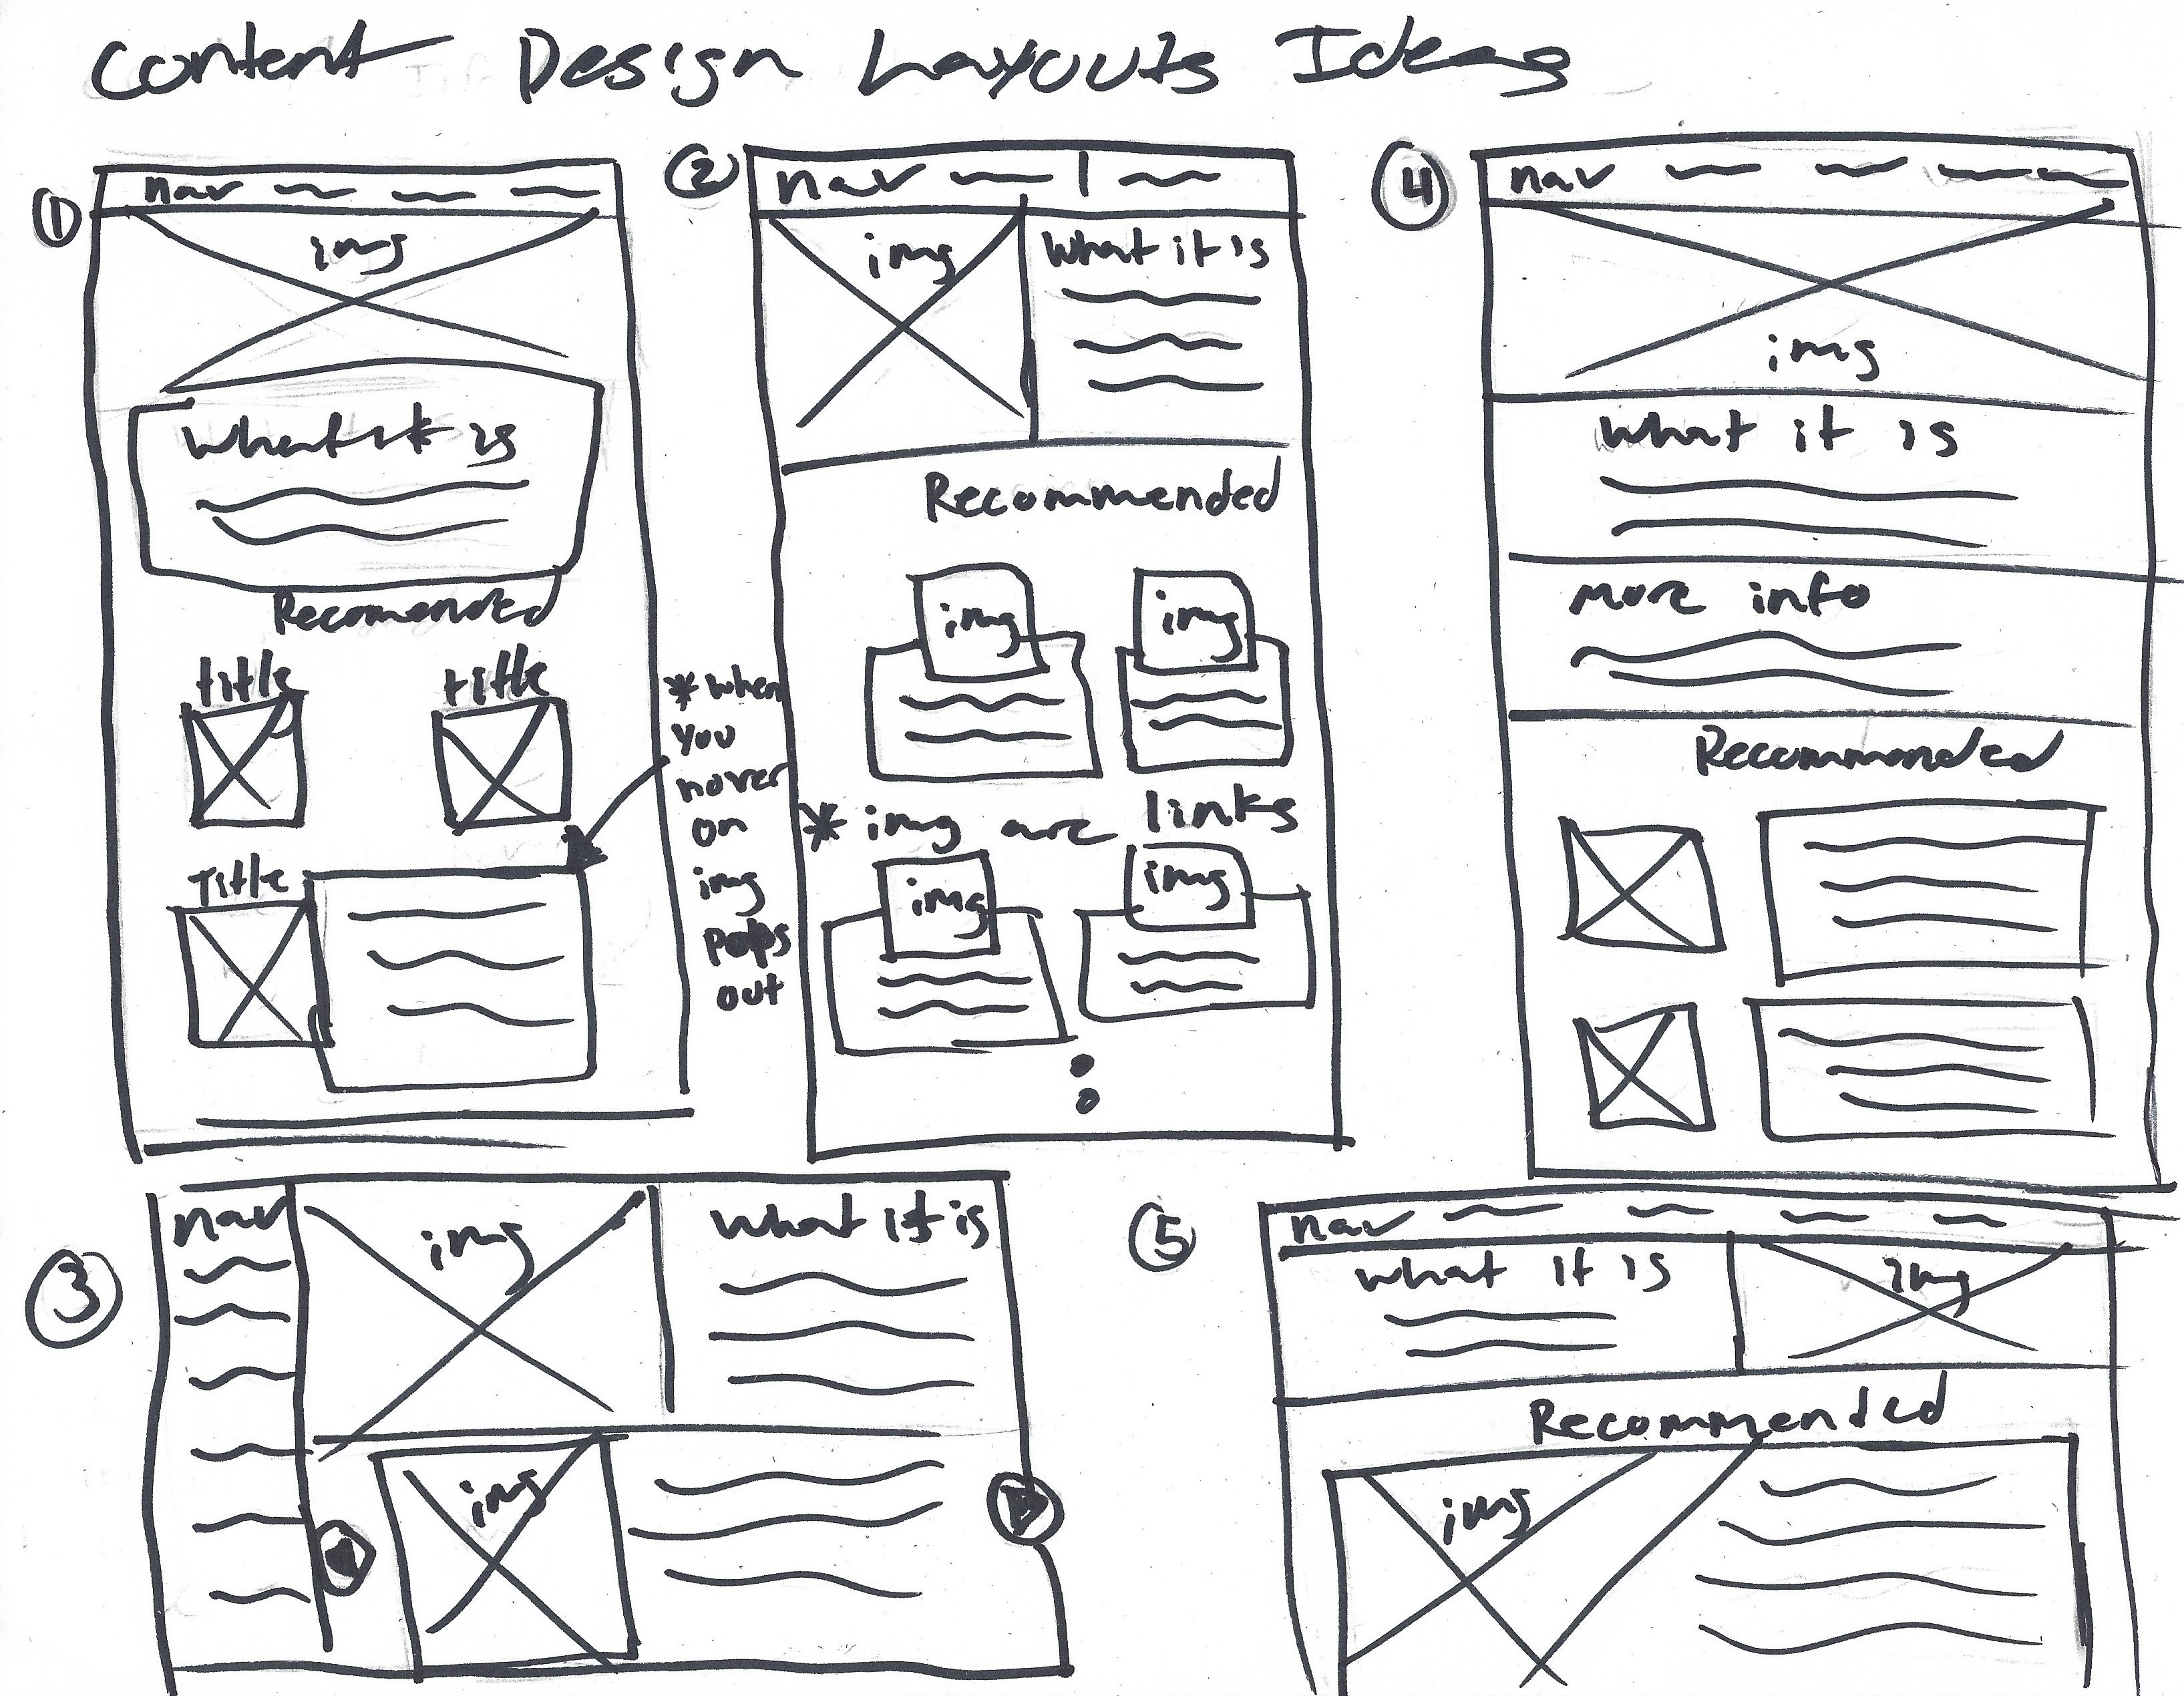 Content Design Layouts Ideas
①
nav
img
What it is
Recomended
title title
Title
* when
you
hover
on
img
pops
out
②
nav
img
What it is
Recommended
img img
* img are links
img img
④
nav
img
What it is
more info
Recommended
③
nav
img
What it is
img
⑤
nav
What it is
img
Recommended
img